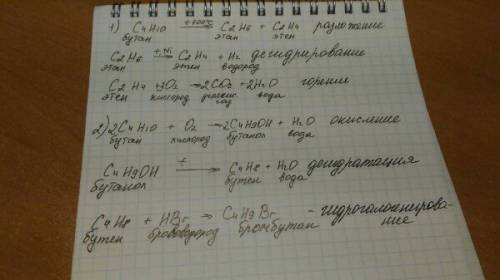 1) C4H10 +500°C → C2H6 + C2H4 разложение
бутан этан этен
C2H6 t, Ni → C2H4 + H2 дегидрирование
этан этен водород
C2H4 + 3O2 → 2CO2 + 2H2O горение
этен кислород углекис. газ вода
2) 2C4H10 + O2 → 2C4H9OH + H2O окисление
бутан кислород бутанол вода
C4H9OH t → C4H8 + H2O дегидратация
бутанол бутен вода
C4H8 + HBr → C4H9Br - гидрогалогенирова-
бутен бромоводород бромбутан ние